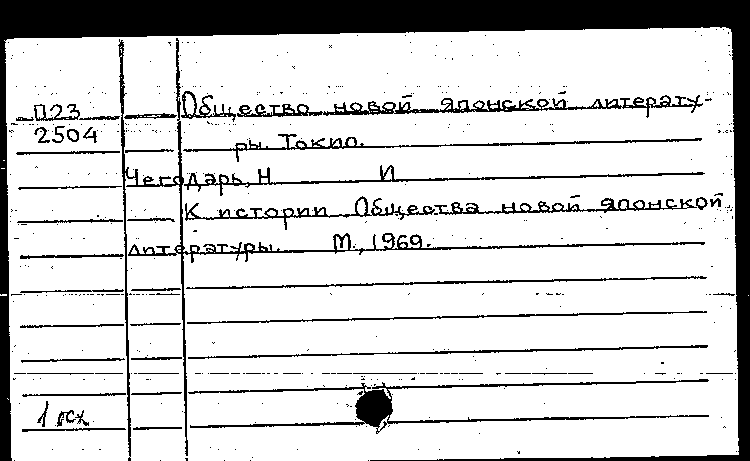 П23
2504
Общество новой японской литерату-
ры. Токио.
Чегодарь, Н И
К истории Общества новой японской
литературы. М., 1969.